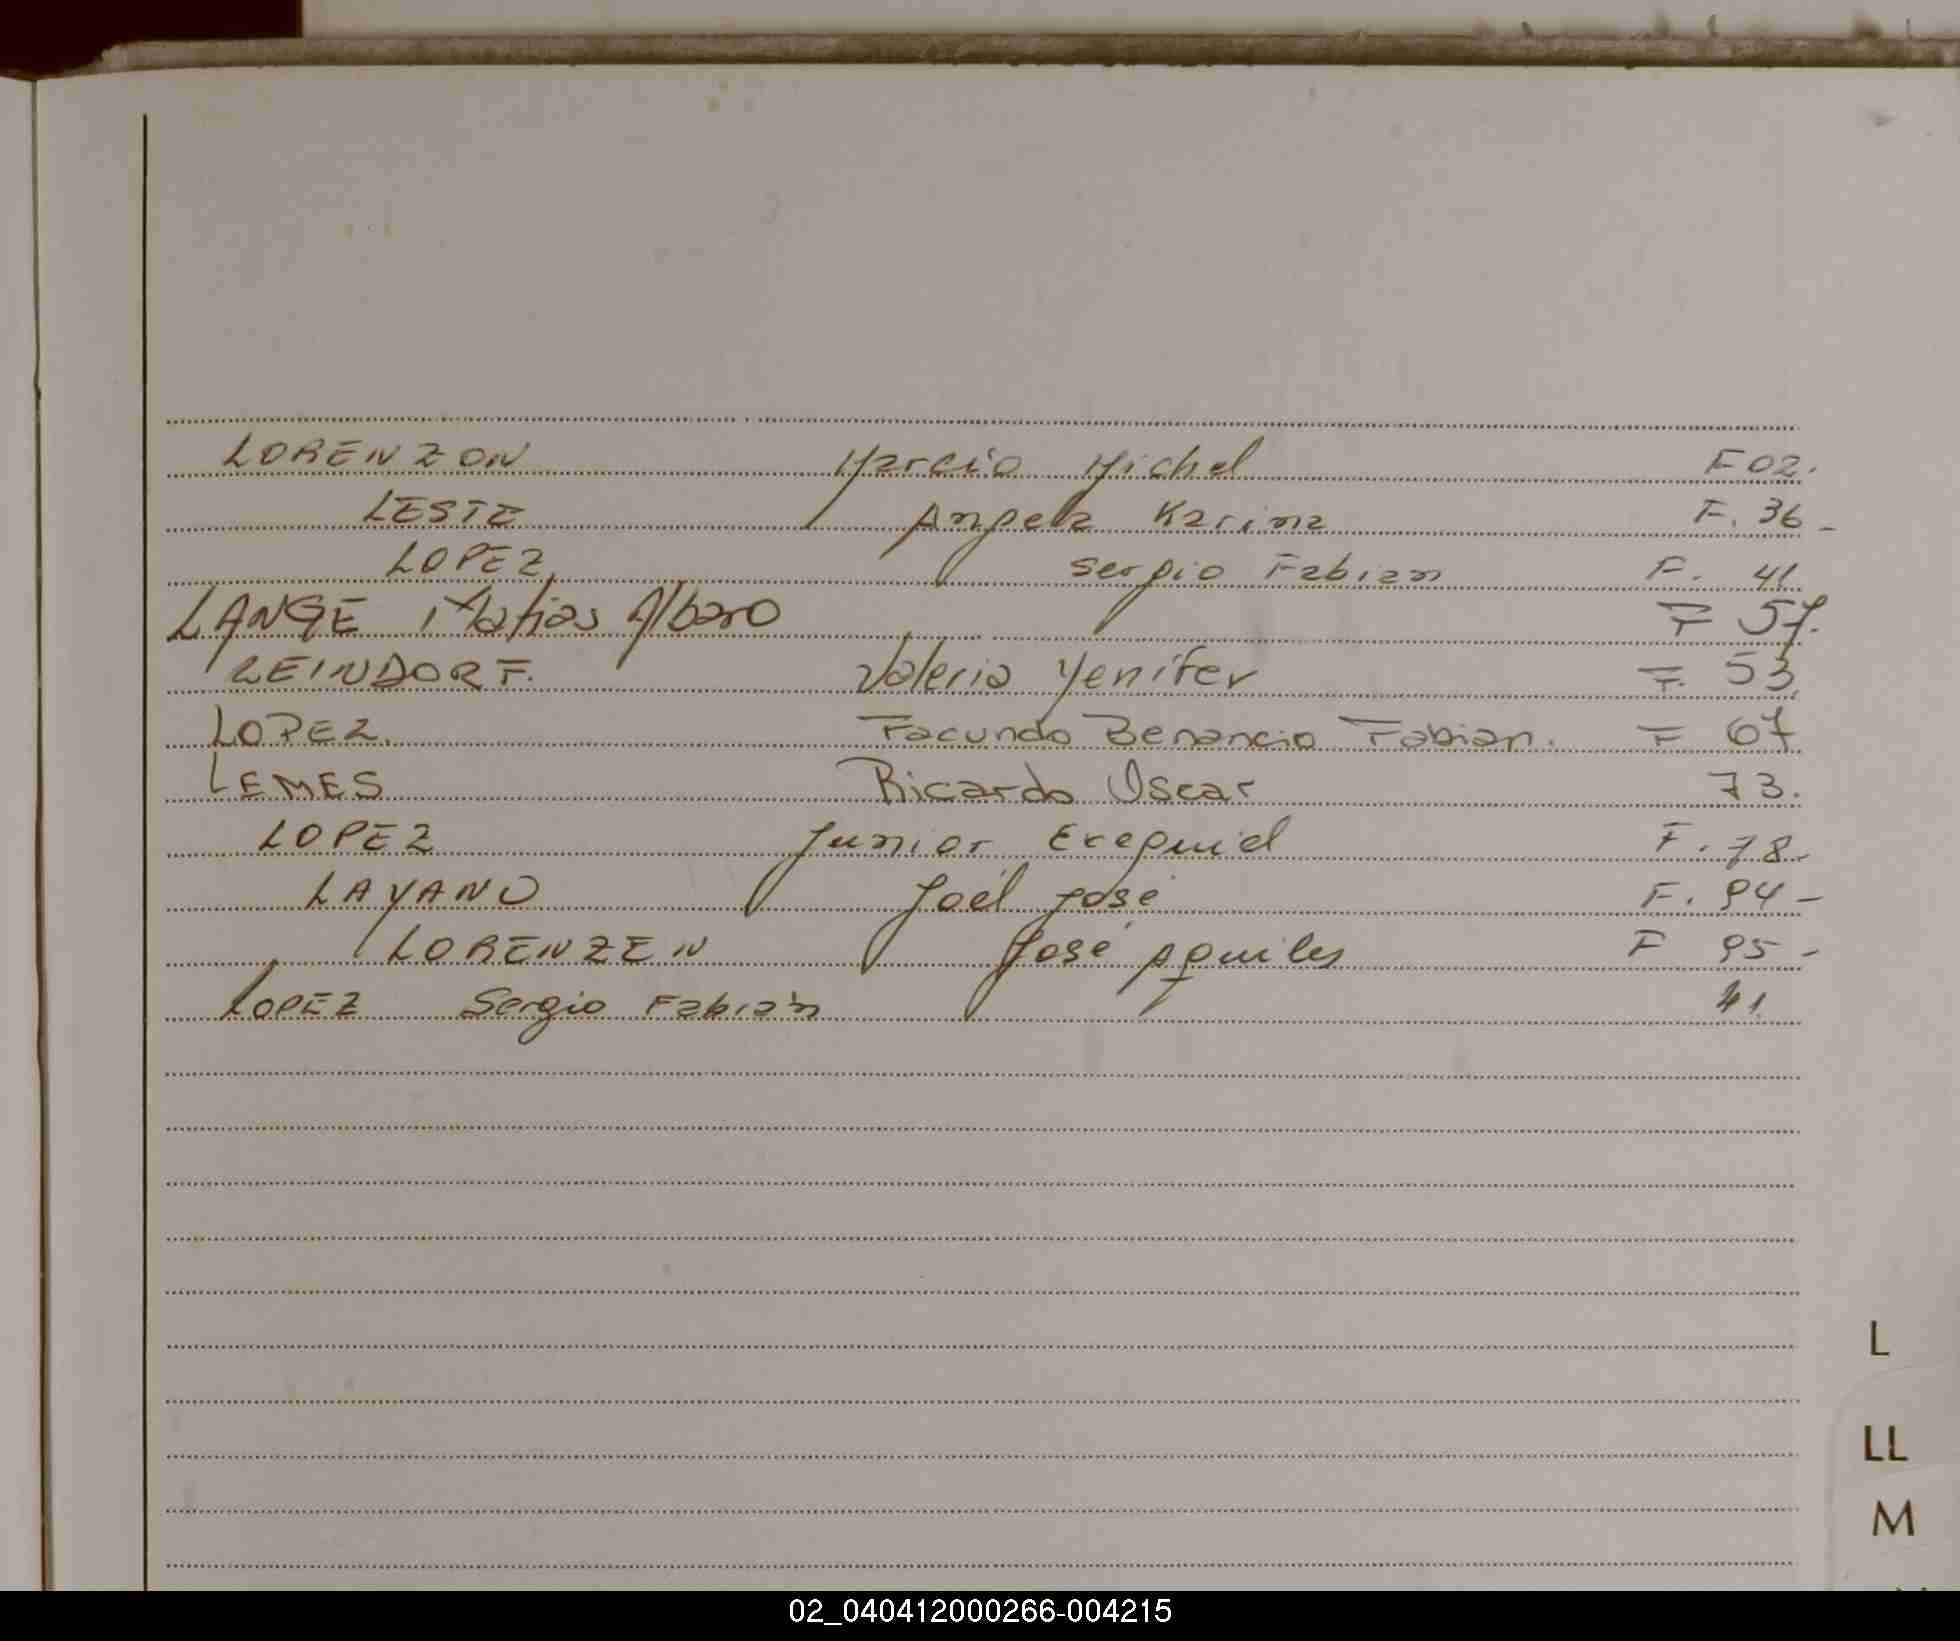 LORENZON Marcio Michel F 02.
LESTE Angela Karina F. 36 -
LOPEZ Sergio Fabian F. 41
LANGE Matias Albaro F 57.
LEINDORF. Valeria Yenifer F. 53
LOPEZ. Facundo Benancio Fabian. F 67
LEMES Ricardo Oscar 73.
LOPEZ Junior Exequiel F. 78-
LAYANO Joél José F. 94 -
LORENZEN José Aquiles F 95 -
LOPEZ Sergio Fabián 41.
L
LL
M
02_040412000266-004215